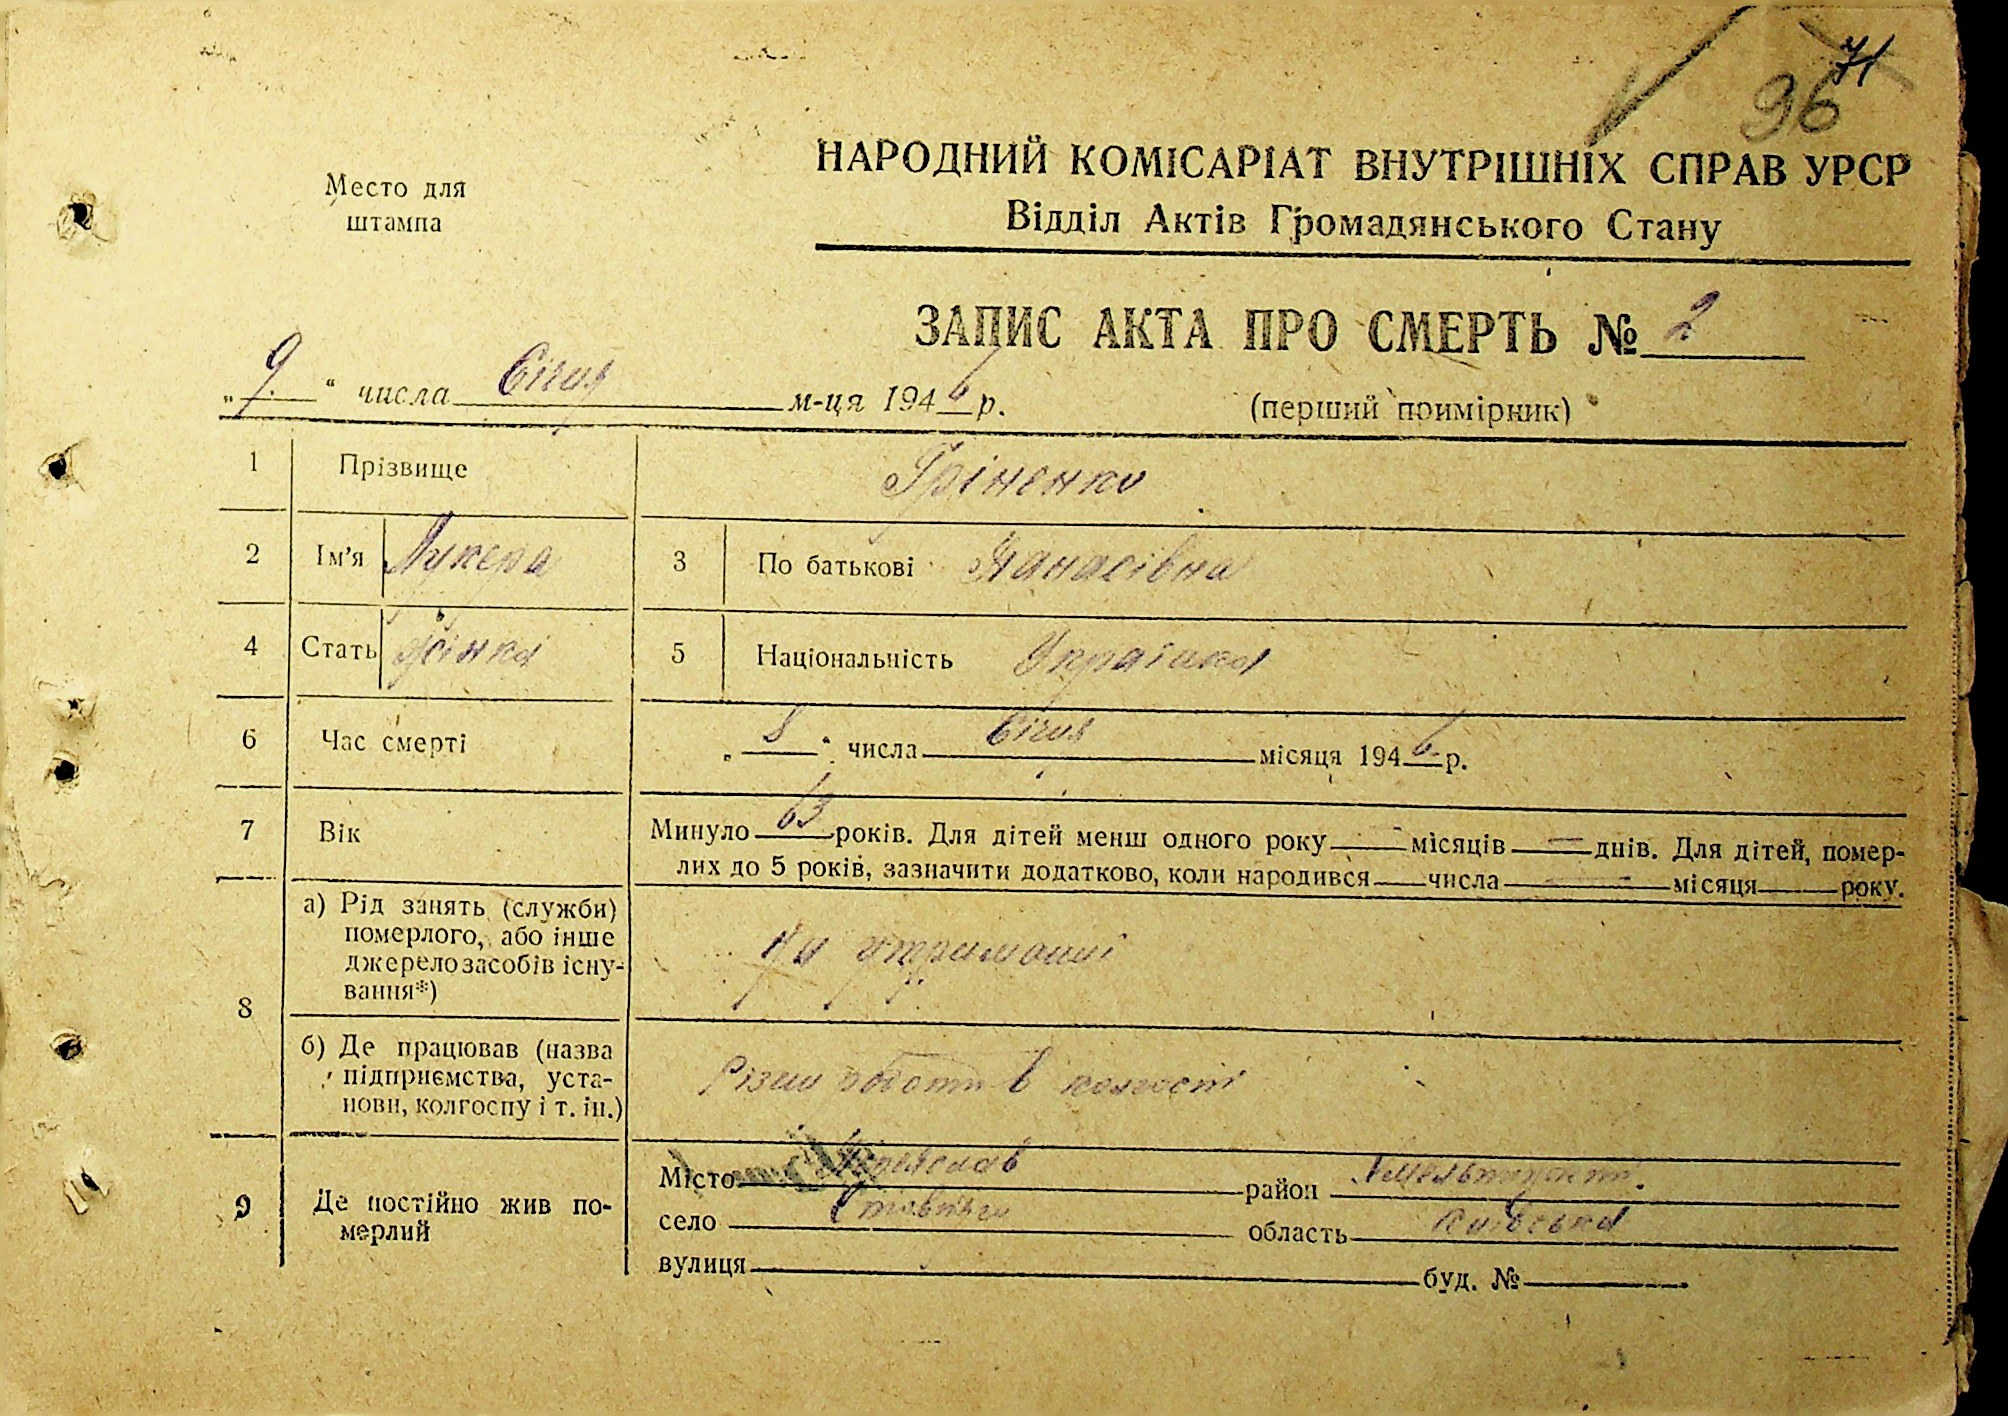 71
96
Место для
штампа
НАРОДНИЙ КОМІСАРІАТ ВНУТРІШНІХ СПРАВ УРСР
Відділ Актів Громадянського Стану
ЗАПИС АКТА ПРО СМЕРТЬ № 2
„9.“ числа Січня м-ця 1946 р.
(перший примірник)
1 Прізвище Гріненко
2 Ім'я Лукера 3 По батькові Панасівна
4 Стать жінка 5 Національність Українка
6 Час смерті „8“ числа Січня місяця 1946 р.
7 Вік Минуло 63 років. Для дітей менш одного року — місяців — днів. Для дітей, помер-
лих до 5 років, зазначити додатково, коли народився числа — місяця року.
8 а) Рід занять (служби)
померлого, або інше
джерело засобів існу-
вання*)
На утриманні
б) Де працював (назва
підприємства, уста-
нови, колгоспу і т. ін.)
Різни роботи в колгоспі
9 Де постійно жив по-
мерлий
Місто Переяслав район
село область Київська
вулиця буд. №